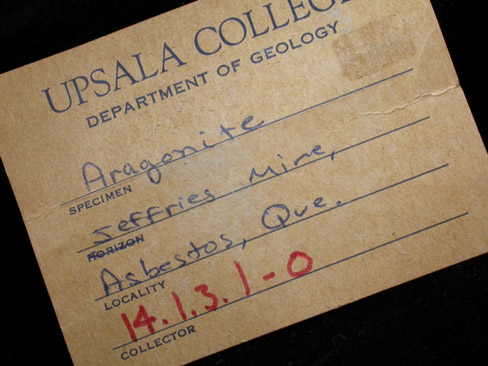 UPSALA COLLEGE
DEPARTMENT OF GEOLOGY
Aragonite
SPECIMEN
Jeffries Mine,
HORIZON
Asbestos, Que.
LOCALITY
14.1.3.1-0
COLLECTOR